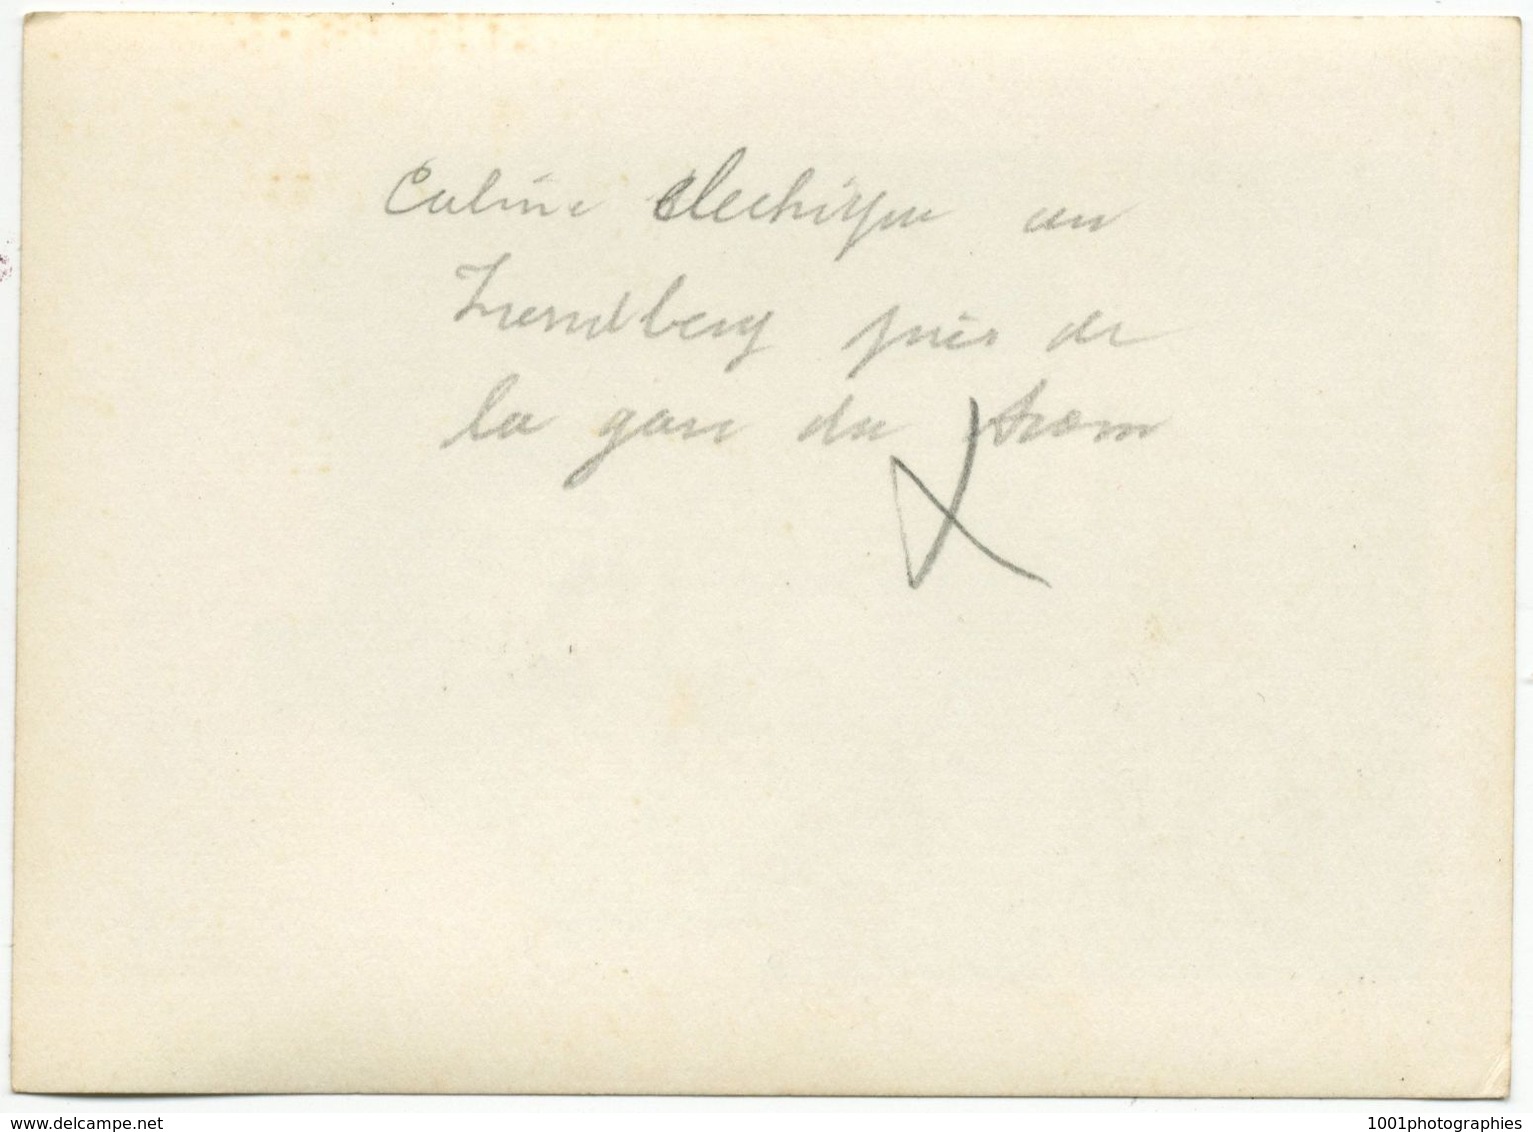 Cabine electrique au
Trendberg près de
la gare du tram
www.delcampe.net
1001photographies